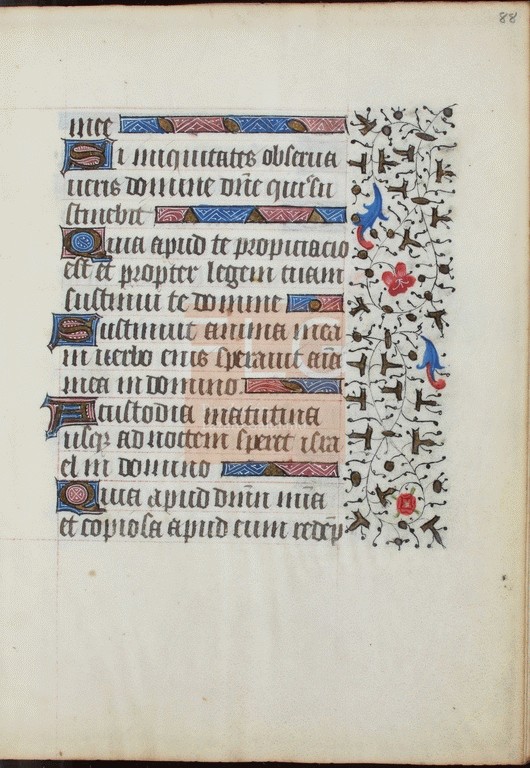 88
mee
Si iniquitates obserua
ueris domine dn̄e quis su
stinebit
Quia apud te propiciacio
est et propter legem tuam
sustinui te domine
Sustinuit anima mea
in uerbo eius sperauit aīa
mea in domino
A custodia matutina
usq̄ ad noctem speret isra
el in domino
Quia apud dnm mīa
et copiosa apud eum redēp